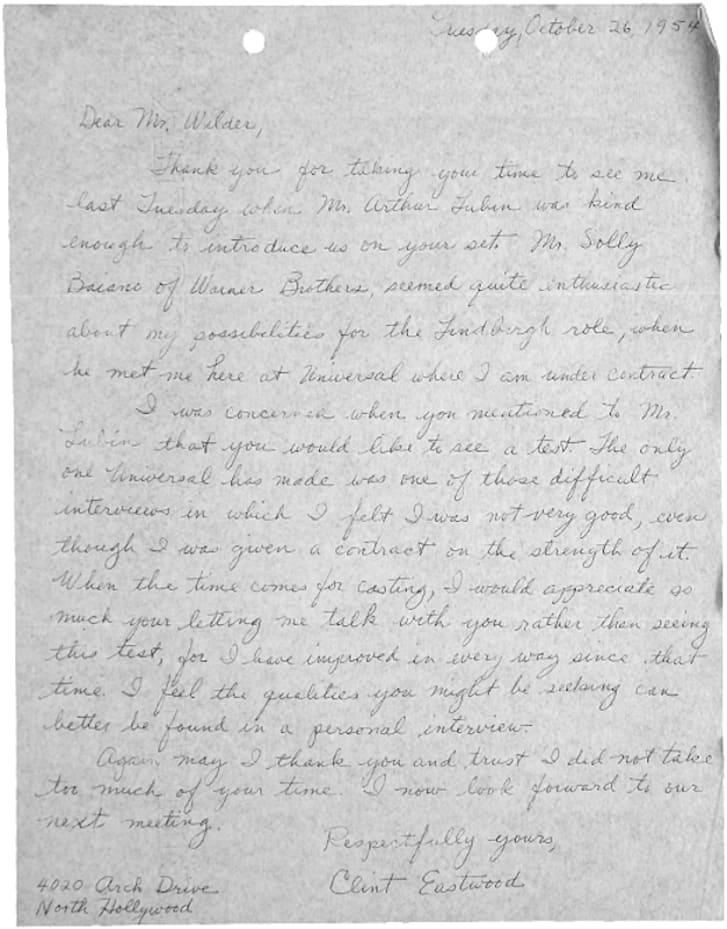 Tuesday, October 26, 1954
Dear Mr. Wilder,
Thank you for taking your time to see me
last Tuesday when Mr. Arthur Lubin was kind
enough to introduce us on your set. Mr. Solly
Baiano of Warner Brothers, seemed quite enthusiastic
about my possibilities for the Lindbergh role, when
he met me here at Universal where I am under contract.
I was concerned when you mentioned to Mr.
Lubin that you would like to see a test. The only
one Universal has made was one of those difficult
interviews in which I felt I was not very good, even
though I was given a contract on the strength of it.
When the time comes for casting, I would appreciate so
much your letting me talk with you rather than seeing
this test, for I have improved in every way since that
time. I feel the qualities you might be seeking can
better be found in a personal interview.
Again may I thank you and trust I did not take
too much of your time. I now look forward to our
next meeting.
Respectfully yours,
Clint Eastwood
4020 Arch Drive
North Hollywood